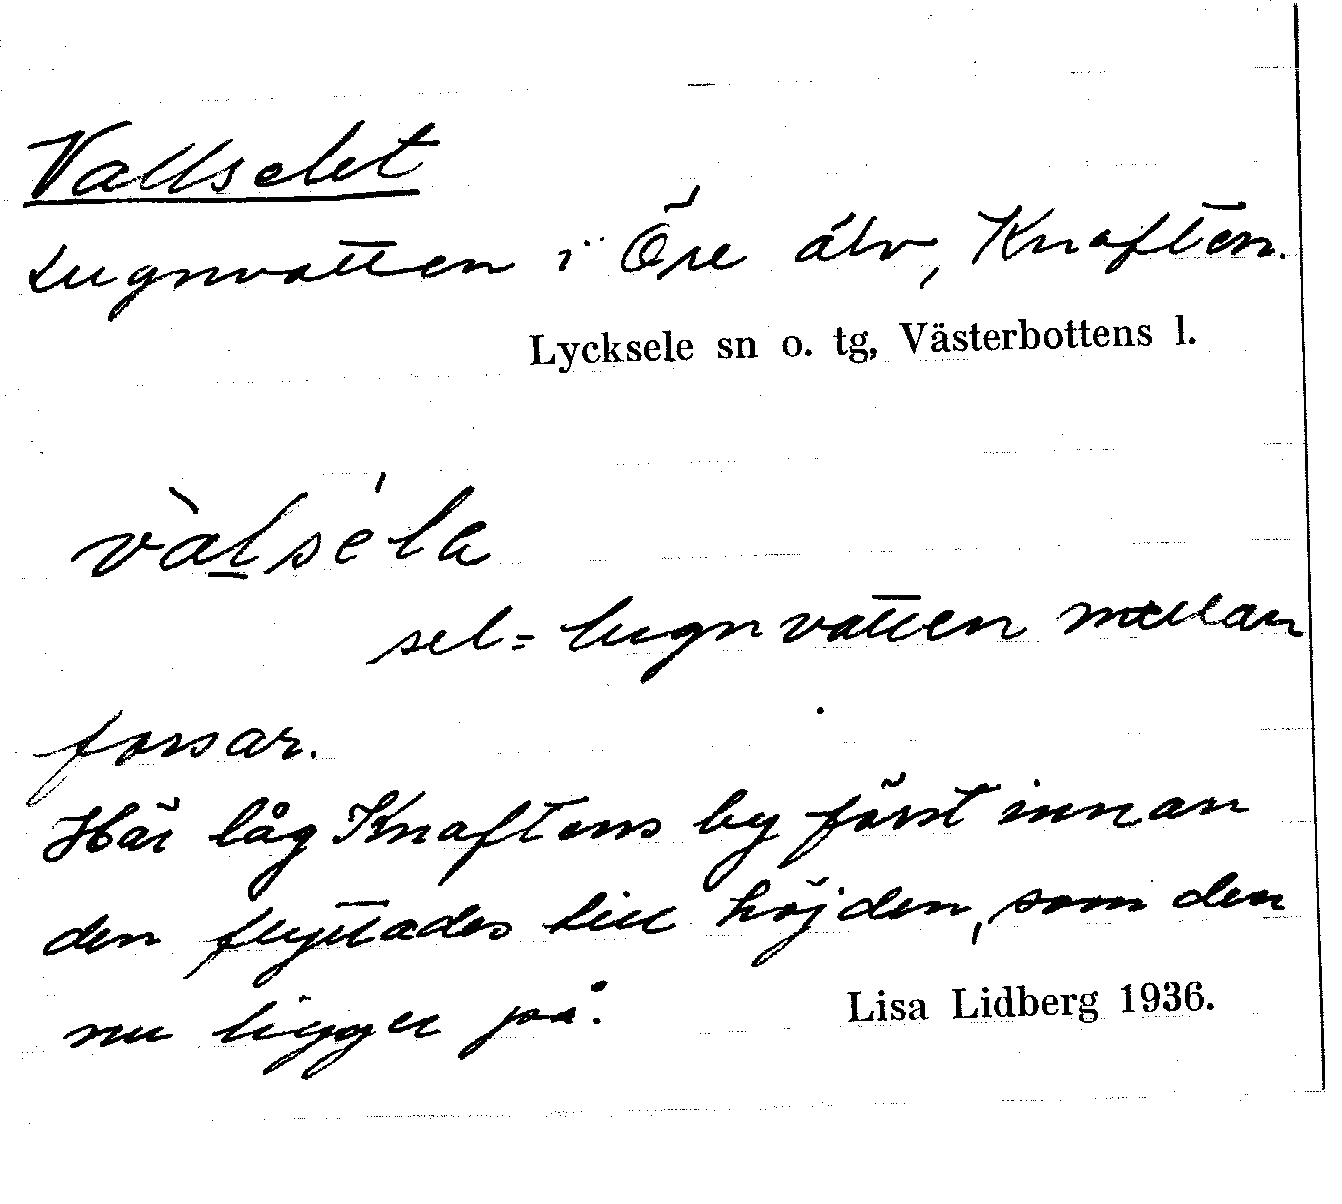 Vallselet
Lugnvatten i Öre älv, Knaften.
Lycksele sn o. tg, Västerbottens l.
vàl̲séla
sel = lugnvatten mellan
forsar.
Här låg Knaftens by först innan
den flyttades till höjden, som den
nu ligger på.
Lisa Lidberg 1936.